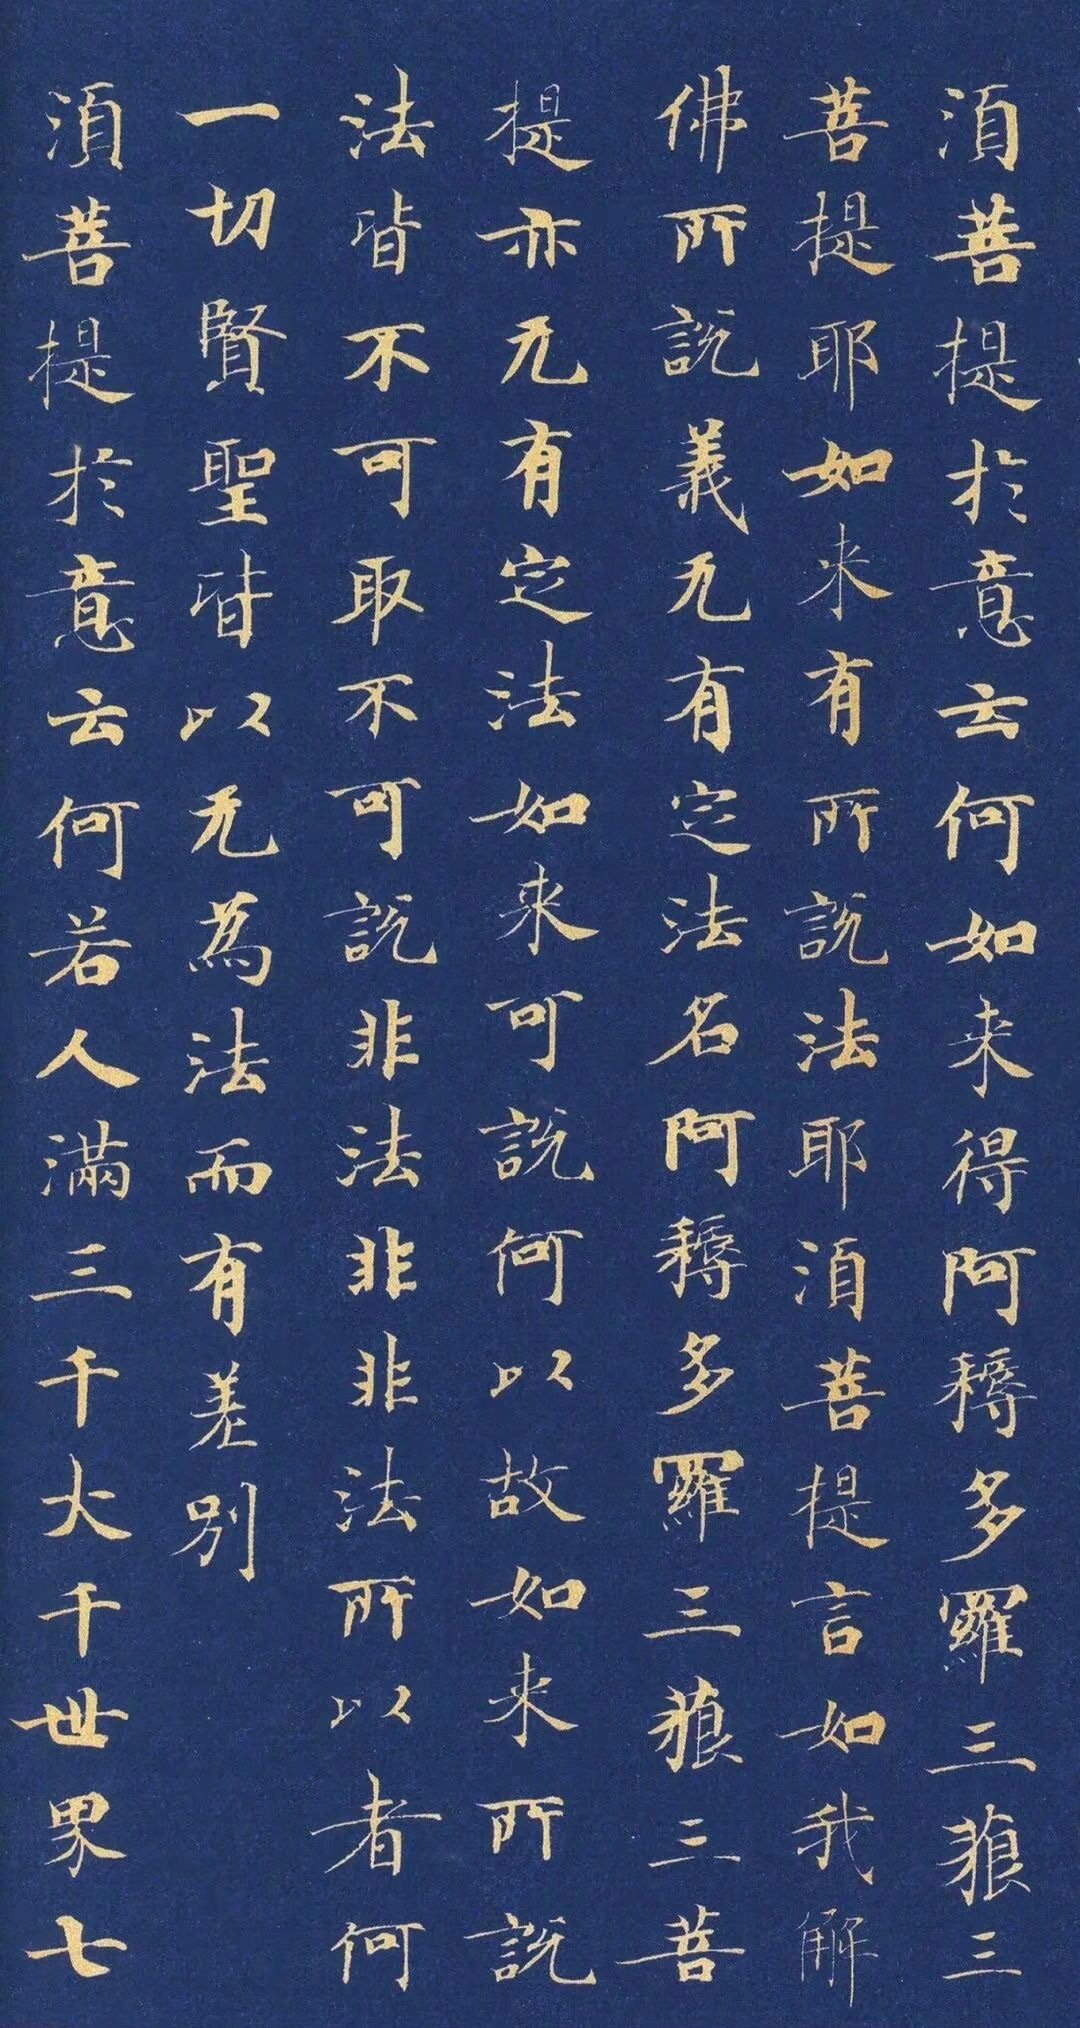 湏菩提於意云何如来得阿耨多羅三藐三
菩提耶如来有所説法耶湏菩提言如我解
佛所説義无有定法名阿耨多羅三藐三菩
提亦无有定法如来可説何以故如来所説
法皆不可取不可説非法非非法所以者何
一切賢聖皆以无為法而有差別
湏菩提於意云何若人滿三千大千世界七